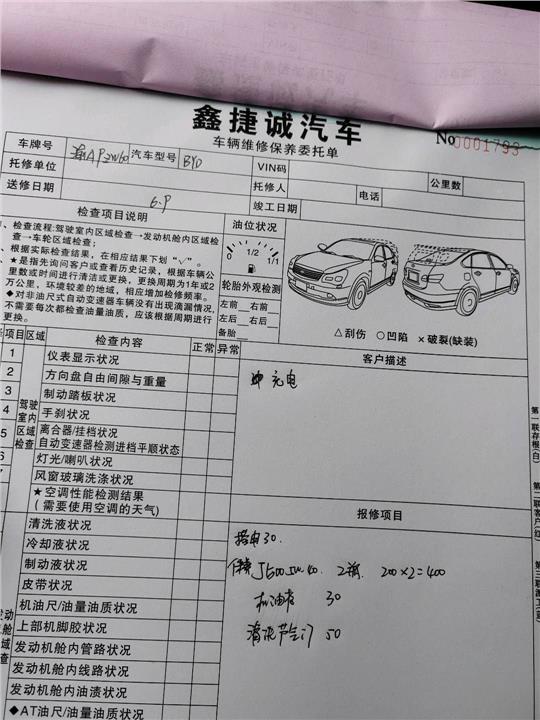 鑫捷诚汽车
车辆维修保养委托单
No 0001793
车牌号 汽车型号 BYD VIN码 公里数
托修单位 托修人 电话
送修日期 6.9 竣工日期
检查项目说明
油位状况
、检查流程:驾驶室内区域检查→发动机舱内区域检
查→车轮区域检查;
、根据实际检查结果,在相应结果下划“√”。
★是指先询问客户或查看历史记录,根据车辆公
里数或时间进行清洁或更换,更换周期为1年或2
万公里,环境较差的地域,相应增加检修频率。
◆对非油尺式自动变速器车辆没有出现滴漏情况,
不需要每次都检查油量油质,应该根据周期进行
更换。
0 1/2 1/1
轮胎外观检测
左前 右前
左后 右后
备胎
△刮伤 ○凹陷 ×破裂(缺装)
项目 区域 检查内容 正常 异常 客户描述
1 仪表显示状况
2 方向盘自由间隙与重量
充电
3 制动踏板状况
4 手刹状况
驾驶室内区域检查
5 离合器/挂档状况
自动变速器检测进档平顺状态
6 灯光/喇叭状况
风窗玻璃洗涤状况
★空调性能检测结果
(需要使用空调的天气)
报修项目
清洗液状况
30.
冷却液状况
保养 J600 5W-40. 2桶. 200×2=400
制动液状况
机油格 30
皮带状况
机油尺/油量油质状况
清洗节气门 50
上部机脚胶状况
发动机舱内管路状况
发动机舱内线路状况
发动机舱内油渍状况
◆AT油尺/油量油质状况
第一联存根(白)
第二联客户(红)